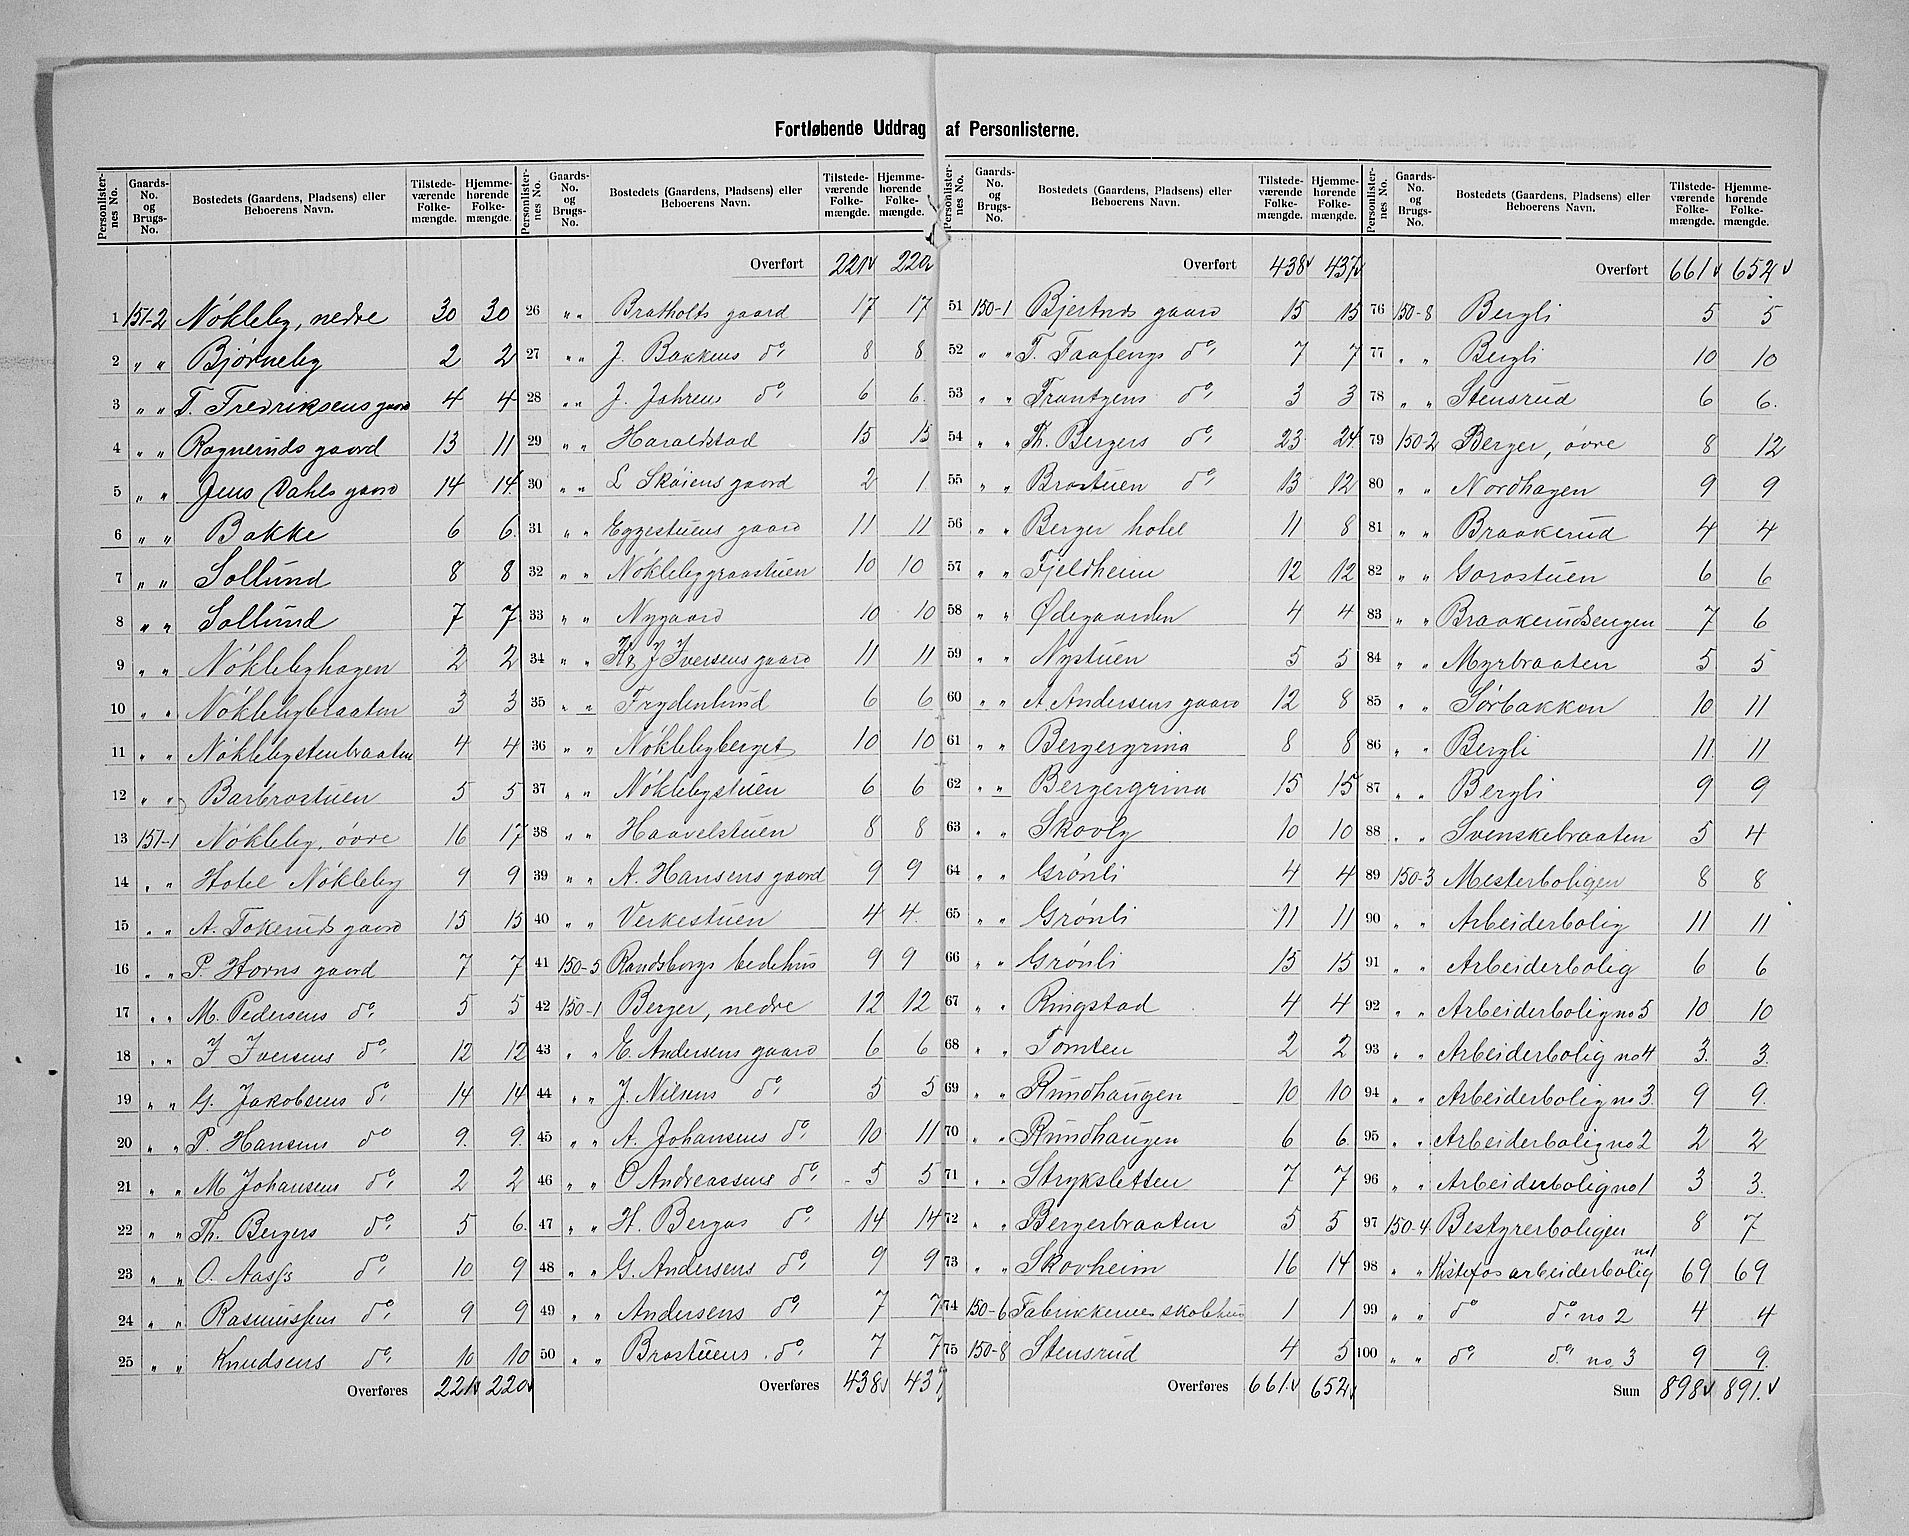 Fortløbende Uddrag af Personlisterne.
Personlisternes No. | Gaards-No. og Brugs-No. | Bostedets (Gaardens, Pladsens) eller Beboerens Navn. | Tilstedeværende Folkemængde. | Hjemmehørende Folkemængde.
1 151-2 Nökleby, nedre 30 30
2 " " Bjørneby 2 2
3 " " T. Fredriksens gaard 4 4
4 " " Ragneruds gaard 13 11
5 " " Jens Dahls gaard 14 14
6 " " Bakke 6 6
7 " " Sollund 8 8
8 " " Sollund 7 7
9 " " Nöklebyhagen 2 2
10 " " Nöklebybraaten 3 3
11 " " Nöklebystenbraaten 4 4
12 " " Barbrostuen 5 5
13 151-1 Nökleby, övre 16 17
14 " " Hotel Nökleby 9 9
15 " " A. Tokeruds gaard 15 15
16 " " P. Horns gaard 7 7
17 " " M. Pedersens do. 5 5
18 " " I Iversens do. 12 12
19 " " G. Jakobsens do. 14 14
20 " " P. Hansens do 9 9
21 " " M Johansens do. 2 2
22 " " Th. Bergers do. 5 6
23 " " O. Aass's do. 10 9
24 " " Rasmussens do. 9 9
25 " " Knudsens do. 10 10
Overføres 221 220
Personlisternes No. | Gaards-No. og Brugs-No. | Bostedets (Gaardens, Pladsens) eller Beboerens Navn. | Tilstedeværende Folkemængde. | Hjemmehørende Folkemængde.
Overført 221 220
26 " " Bratholts gaard 17 17
27 " " J. Bakkens do. 8 8
28 " " J. Jahrens do. 6 6
29 " " Haraldstad 15 15
30 " " L Sköiens gaard 2 1
31 " " Eggestuens gaard 11 11
32 " " Nöklebygraastuen 10 10
33 " " Nygaard 10 10
34 " " Kr J Iversens gaard 11 11
35 " " Frydenlund 6 6
36 " " Nöklebyberget 10 10
37 " " Nöklebystuen 6 6
38 " " Haavelstuen 8 8
39 " " A. Hansens gaard 9 9
40 " " Verkestuen 4 4
41 150-5 Randsborgs bedehus 9 9
42 150-1 Berger, nedre 12 12
43 " " E. Andersens gaard 6 6
44 " " J. Nilsens do. 5 5
45 " " A. Johansens do. 10 11
46 " " O Andreassens do. 5 5
47 " " H. Bergas do. 14 14
48 " " G. Andersens do. 9 9
49 " " Andersens do. 7 7
50 " " Brostuens do. 7 7
Overføres 438 437
Personlisternes No. | Gaards-No. og Brugs-No. | Bostedets (Gaardens, Pladsens) eller Beboerens Navn. | Tilstedeværende Folkemængde. | Hjemmehørende Folkemængde.
Overført 438 437
51 150-1 Bjertnds gaard 15 15
52 " " T. Faafengs do. 7 7
53 " " Frantzens do. 3 3
54 " " Th. Bergers do. 23 24
55 " " Brostuen do. 13 12
56 " " Berger hotel 11 8
57 " " Fjeldheim 12 12
58 " " Ødegaarden 4 4
59 " " Nystuen 5 5
60 " " A Andersens gaard 12 8
61 " " Bergergrina 8 8
62 " " Bergergrina 15 15
63 " " Skovly 10 10
64 " " Grönli 4 4
65 " " Grönli 11 11
66 " " Grönli 15 15
67 " " Ringstad 4 4
68 " " Tomten 2 2
69 " " Rundhaugen 10 10
70 " " Rundhaugen 6 6
71 " " Stryksletten 7 7
72 " " Bergerbraaten 5 5
73 " " Skovheim 16 14
74 150-6 Fabrikkernes skolehus 1 1
75 150-8 Stensrud 4 5
Overføres 661 652
Personlisternes No. | Gaards-No. og Brugs-No. | Bostedets (Gaardens, Pladsens) eller Beboerens Navn. | Tilstedeværende Folkemængde. | Hjemmehørende Folkemængde.
Overført 661 652
76 150-8 Bergli 5 5
77 " " Bergli 10 10
78 " " Stensrud 6 6
79 150-2 Berger, övre 8 12
80 " " Nordhagen 9 9
81 " " Braakerud 4 4
82 " " Gorostuen 6 6
83 " " Braakerudsengen 7 6
84 " " Myrbraaten 5 5
85 " " Sörbakken 10 11
86 " " Bergli 11 11
87 " " Bergli 9 9
88 " " Svenskebraaten 5 4
89 150-3 Mesterboligen 8 8
90 " " Arbeiderbolig 11 11
91 " " Arbeiderbolig 6 6
92 " " Arbeiderbolig no 5 10 10
93 " " Arbeiderbolig no 4 3 3
94 " " Arbeiderbolig no 3 9 9
95 " " Arbeiderbolig no 2 2 2
96 " " Arbeiderbolig no 1 3 3
97 150-4 Bestyrerboligen 8 7
98 " " Kistefos arbeiderbolig no 1 69 69
99 " " do do. no 2 4 4
100 " " do. do. no 3 9 9
Sum 898 891